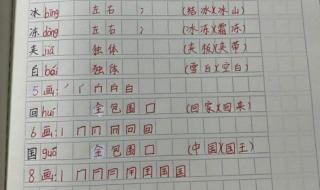 冰 bīng 左右 冫 (结冰)(冰山)
冻 dòng 左右 冫 (冰冻)(霜冻)
夹 jiā 独体 (夹板)(夹带)
白 bái 独体 (雪白)(空白)
5画: 丿 白
回 huí 全包围 囗 (回家)(回来)
6画: 丨 冂 冂 回 回
国 guó 全包围 囗 (中国)(国王)
8画: 丨 冂 国 国